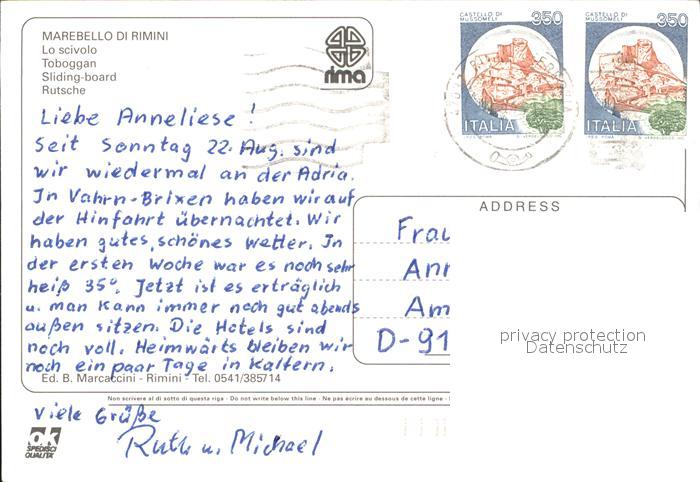 MAREBELLO DI RIMINI
Lo scivolo
Toboggan
Sliding-board
Rutsche
rima
CASTELLO DI MUSSOMELI 350
ITALIA
CASTELLO DI MUSSOMELI 350
ITALIA
Liebe Anneliese!
Seit Sonntag 22. Aug. sind
wir wiedermal an der Adria.
In Vahrn-Brixen haben wir auf
der Hinfahrt übernachtet. Wir
haben gutes, schönes Wetter. In
der ersten Woche war es noch sehr
heiß 35°. Jetzt ist es erträglich
u. man kann immer noch gut abends
außen sitzen. Die Hotels sind
noch voll. Heimwärts bleiben wir
noch ein paar Tage in Kaltern.
Ed. B. Marcaccini - Rimini - Tel. 0541/385714
Non scrivere al di sotto di questa riga - Do not write below this line - Ne pas ecrire au dessous de cette ligne -
Viele Grüße
Ruth u. Michael
ok
SPEDISCI
QUALITA'
ADDRESS
Frau
Ann
Am
D-91
privacy protection
Datenschutz